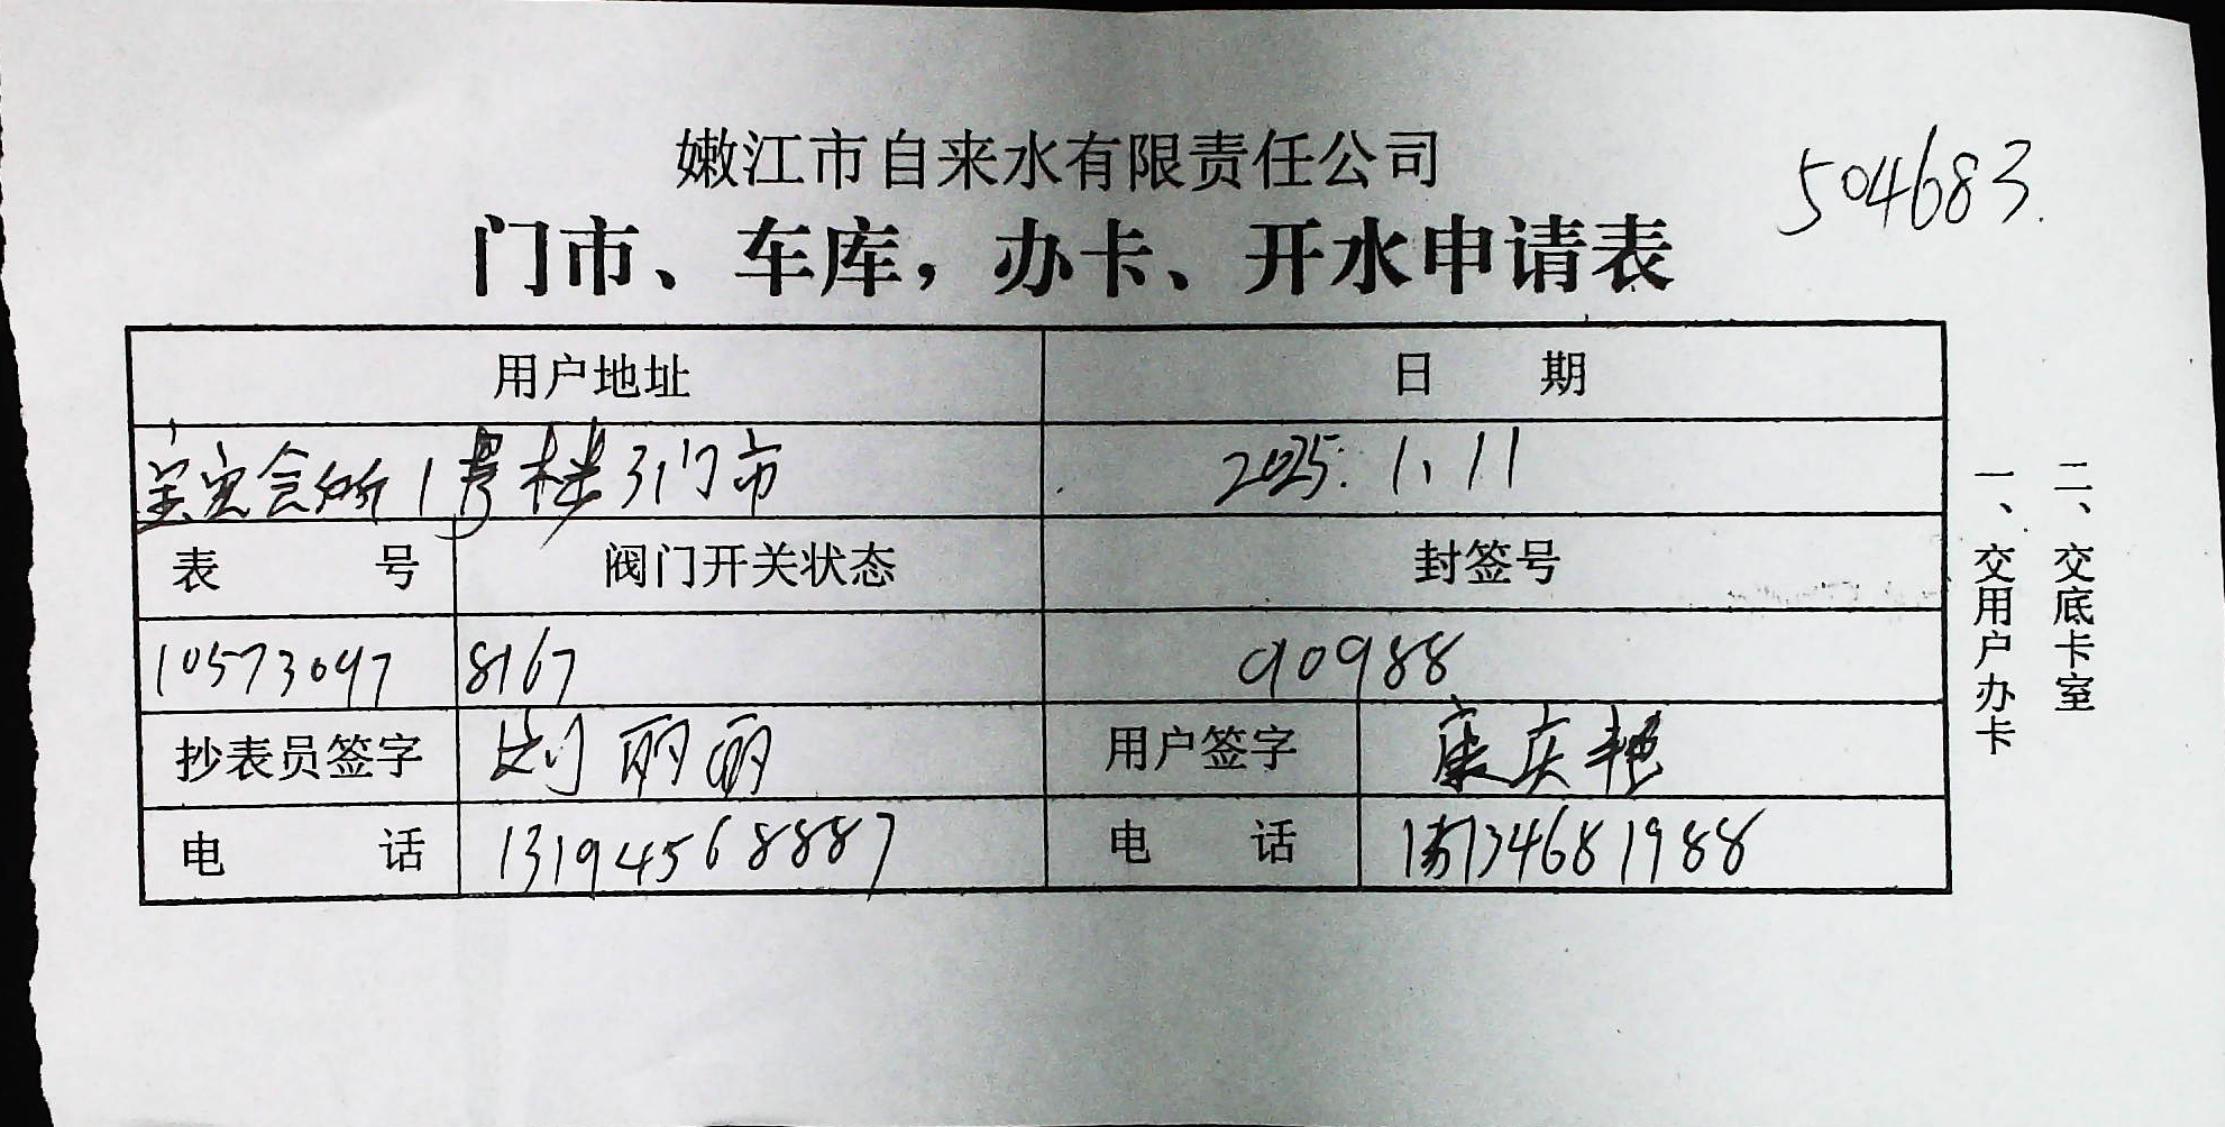 嫩江市自来水有限责任公司
504683.
门市、车库，办卡、开水申请表
用户地址 日期
会所1号楼3门市 2025.1.11
表号 阀门开关状态 封签号
10573097 8167 90988
抄表员签字 刘丽丽 用户签字 康庆艳
电话 13194568887 电话 734681988
一、交用户办卡
二、交底卡室